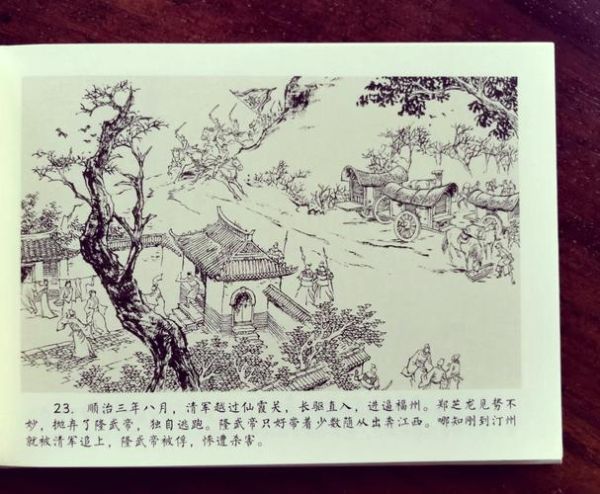 23. 顺治三年八月，清军越过仙霞关，长驱直入，进逼福州。郑芝龙见势不
妙，抛弃了隆武帝，独自逃跑。隆武帝只好带着少数随从出奔江西。哪知刚到汀州
就被清军追上，隆武帝被俘，惨遭杀害。